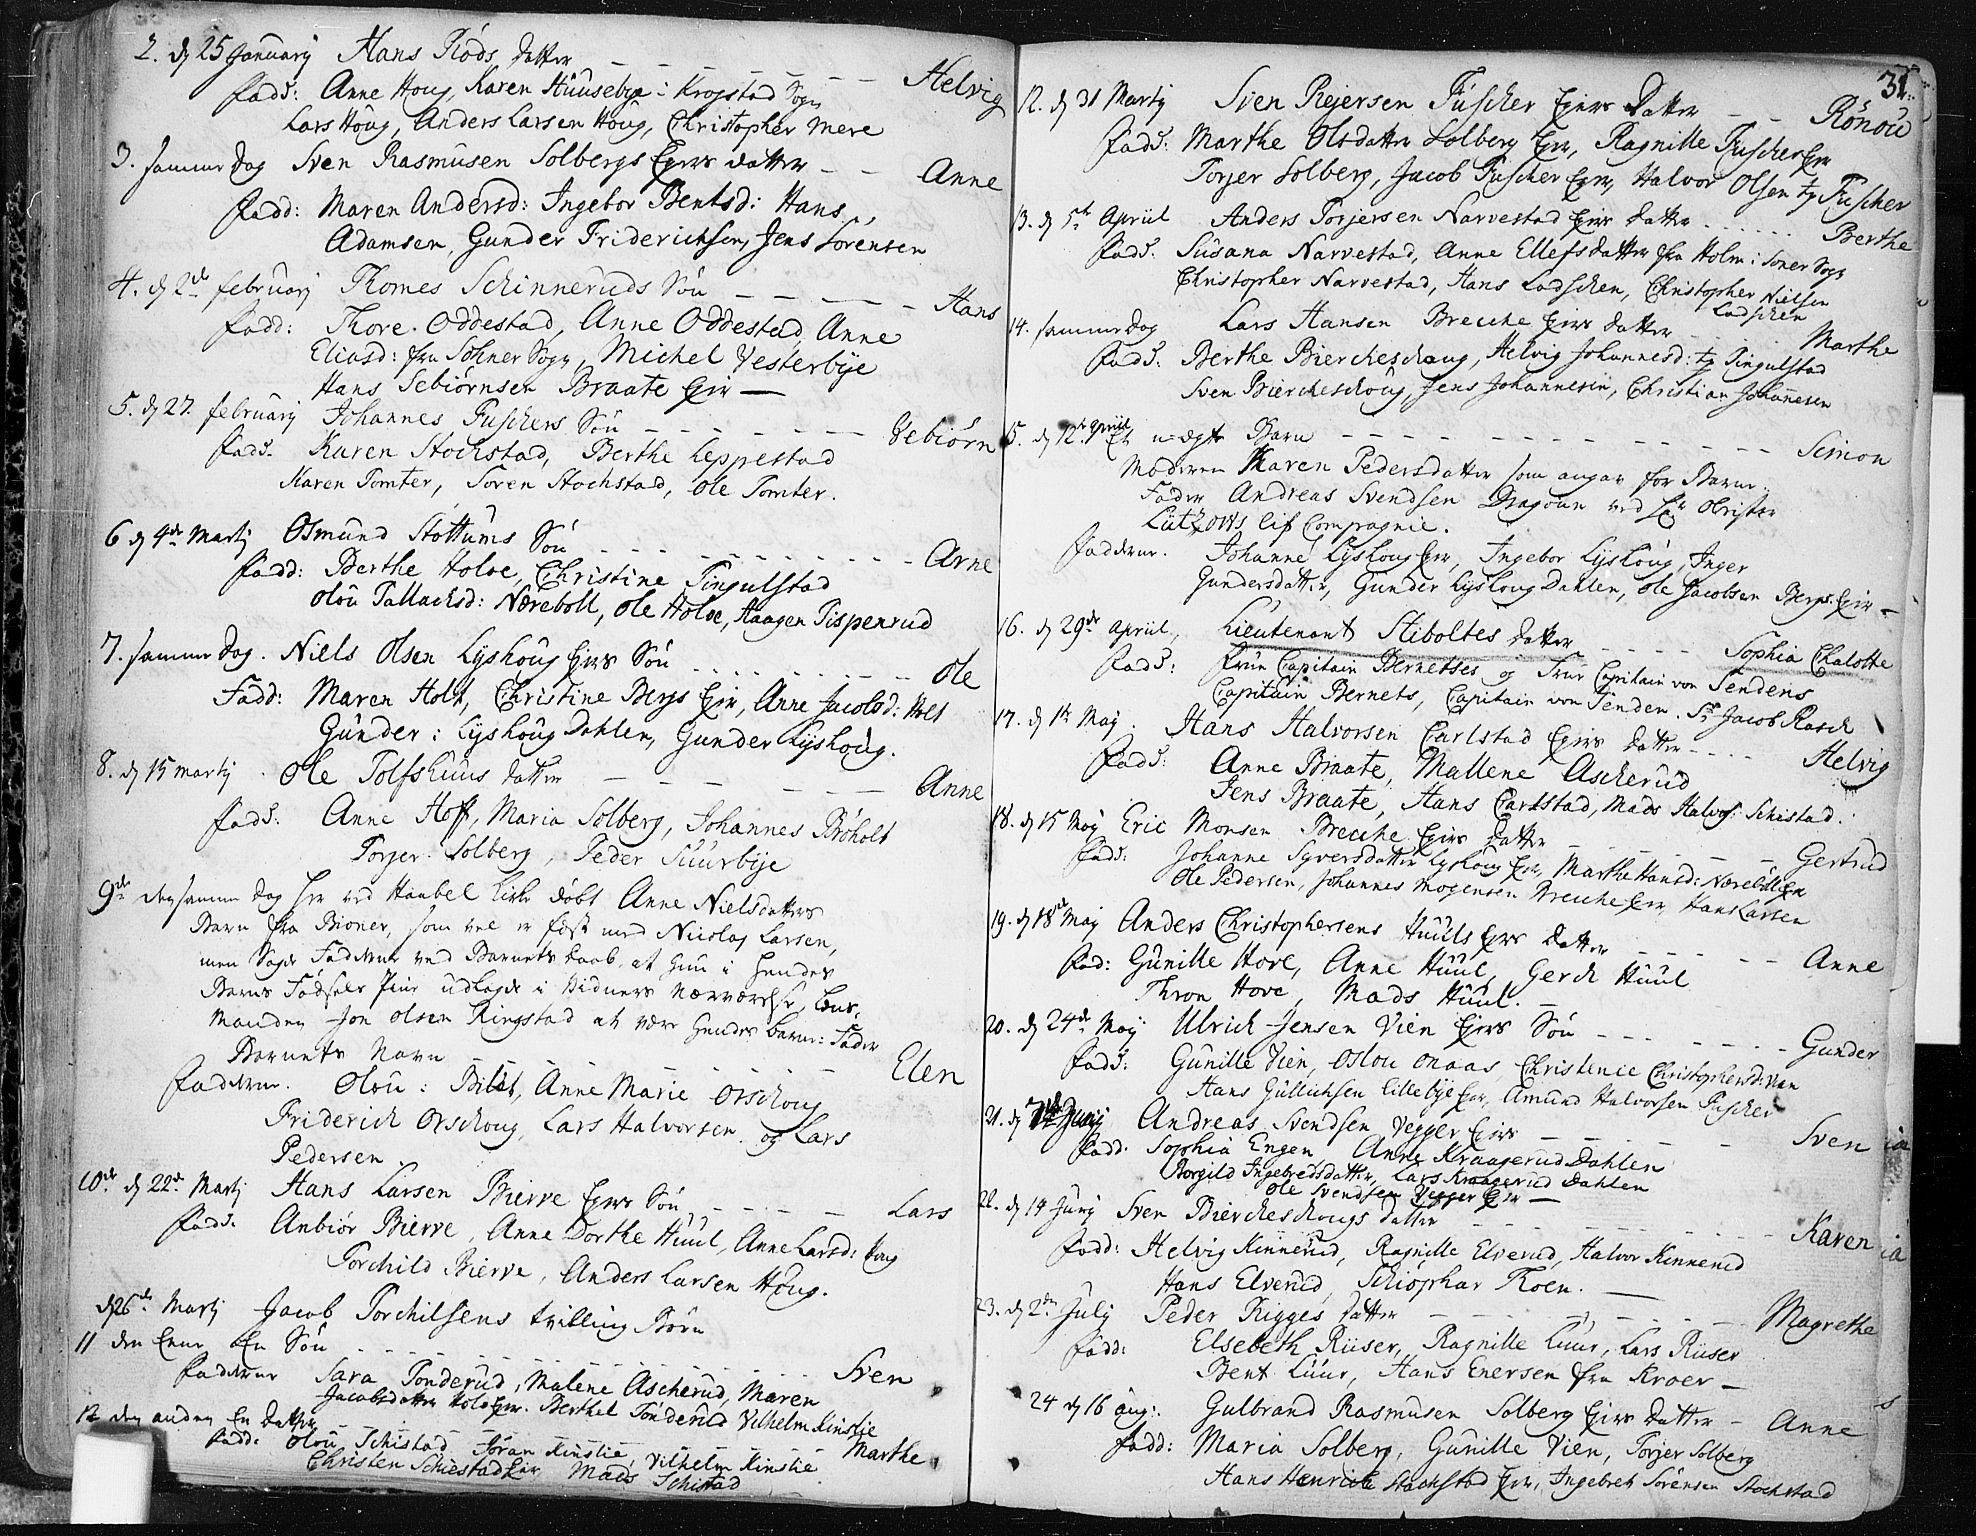 2. d 25 January Hans Riøds datter - - - - - - - Helvig
fadd: Anne Houg, Karen Huusebye i Krogstad Sogn
Lars Houg, Anders Larsen Houg, Christopher Mere
3. samme dag Sven Rasmusen Solbergs Eyers datter - - Anne
fadd: Maren Andersd: Ingebor Bentsd: Hans
Adamsen, Gunder Friderichsen, Jens Sørensen
4. d 2de february Thomes Schinneruds Søn - - - - - Hans
fadd: Thore Oddestad, Anne Oddestad, Anne
Eliasd: fra Sohner Sogn, Michel Vesterbye
Hans Sebiørnsen Braate Eyer —
5. d 27. february Johannes Fuschers Søn - - - - - - Sebiørn
fadd. Karen Stochstad, Berthe Leppestad
Karen Tomter, Soren Stochstad, Ole Tomter.
6 d 4de Martj Osmund Stottums Søn - - - - - - - - - - Arne
fadd: Berthe Holoe, Christine Tingulstad
Olou Tallachsd: Nærebøll, Ole Holoe, Haagen Tispenrud
7. samme dag. Niels Olsen Lyshoug Eyers Søn - - - - - - - Ole
Fadd: Maren Holt, Christine Bergs Eyer, Anne Jacobsd: Holt
Gunder: Lyshoug Dahlen, Gunder Lyshoug.
8. d 15 martij Ole Tolfshuus datter - - - - - Anne
fadd: Anne Hoff, Maria Solberg, Johannes Brøholt
Torger Solberg, Peder Suurbye
9de den samme dag her ved Haabel Kirke døbt Anne Nielsdatters
Barn fra Bioner, som vel er fest med Nicolay Larsen,
men Sagde Fadderne ved Barnets daab, at hun i hendes
Barns Fødsels Pine udlagde i Vidners Nærværelse, Lens-
manden Jon Olsen Ringstad at være hendes barne: Fader
Barnets Navn - - - - - - - - Elen
Fadderne. Olou: Bilet, Anne Marie Orschoug
Friderich Orschoug, Lars Halvorsen og Lars
Pedersen.
10de d 22de Martj Hans Larsen Bierve Eyers Søn - - - - - Lars
fadd. Anbiør Bierve, Anne Dorthe Huul, Anne Larsd: Houg
Torchild Bierve, Anders Larsen Houg.
d 26de Martj Jacob Torchilsens tvilling Børn
11 den Eene en Søn - - - - - - - - - - - Sven
Fadderne Sara Tonderud, Malene Ascherud, Maren
Jacobsdatter Holo Eyer. Berthel Tonderud Vilhelm Kinslie
12 den anden En datter - - - - - - - Marthe
fadd: Olou Schistad Jøran Kinslie, Vilhelm Kinslie
Christen Schiestad Eyer Mads Schistad
31.
12. d 31 Martij Sven Rejersen Fuscher Eyers datter - - Rønou
fadd: Marthe Olsdatter Solberg Eyer, Ragnille Fuscher Eyer
Torjer Solberg, Jacob Fuscher Eyer, Halvor Olsen tg Fuscher
13. d 5te Apriil Anders Torjersen Narvestad Eyers datter - - - - - - Berthe
fadd. Susana Narvestad, Anne Ellefsdatter fra Holm i Soner Sogn
Christopher Narvestad, Hans Ladschen, Christopher Nielsen
Ladschen
14. samme dag Lars Hansen Brecche Eyers datter - - - - Marthe
fadd: Berthe Bierckeschoug, Helvig Johannesd: tg Tingulstad
Sven Bierckeschoug, Jens Johannesen, Christian Johannesen
15. d 12te Apriil Et uægte Barn - - - - - - - - - - - - - Simon
Moderen Karen Pedersdatter som angav for Barne-
Fader Andreas Svendsen Dragoun ved Hr Obrister
Lützows Lif Compagnie.
fadderne. Johanne Lyshoug Eyer, Ingebor Lyshoug, Inger
Gundersdatter, Gunder Lyshoug Dahlen, Ole Jacobsen Bergs Eyer -
16. d 29de Apriil, Lieutenant Stiboltes datter - - - - - Sophia Chalotte
fadd: Frue Capitain Bernettes og Frue Capitain von Tendens
Capitain Bernets, Capitain von Tenden. Sr Jacob Rasch
17. d 1te Maj. Hans Halvorsen Carlstad Eyers datter - - - - Helvig
fadd: Anne Braate, Mallene Ascherud
Jens Braate, Hans Carlstad, Mads Halvs: Schistad.
18. d 15 Maj Eric Monsen Brecche Eyers datter - - - - - - - Gertrud
fadd: Johanne Syversdatter Lyshoug Eyer, Marthe Hansd: Nærebøll Eyer
Ole Pedersen, Johannes Mogensen Brecche Eyer, Hans Larsen
19. d 18de Maj Anders Christophersens Huuls Eyers datter - - - - - - Anne
fad: Gunille Hove, Anne Huul, Gerch Huul
Thron Hove, Mads Huul. —
20. d 24de Maj Ulrich Jensen Vien Eyers Søn - - - - - - - - Gunder
fadd: Gunille Vien, Oslou Onaas, Christence Christophersd: Vien
Hans Gullichsen Lillebye Eyer, Amund Halvorsen Fuscher
21. d Junij Andreas Svendsen Vegger Eyers - - - - - - - Sven
fadd. Sophia Engen, Anne Kraagerud Dahlen
Borgild Ingebredsdatter, Lars Kraagerud Dahlen
Ole Svendsen Vegger Eyer —
22. d 14 Junij Sven Bierckeschougs datter - - - - - - - - - Karen
fadd: Helvig Kinnerud, Ragnille Elverud, Halvor Kinnerud
Hans Elverud, Schiophar Thoen. —
23. d 2den Julj Peder Rigges datter - - - - - - - - Magrethe
fadd: Elsebeth Riiser, Ragnille Luur, Lars Riiser
Bent Luur, Hans Enersen fra Kroer —
24 d 16 aug: Gulbrand Rasmusen Solberg Eyers datter - Anne
fadd: Maria Solberg, Gunille Vien, Torjer Solberg
Hans Henrich Stochstad Eyer, Ingebret Sørensen Stochstad